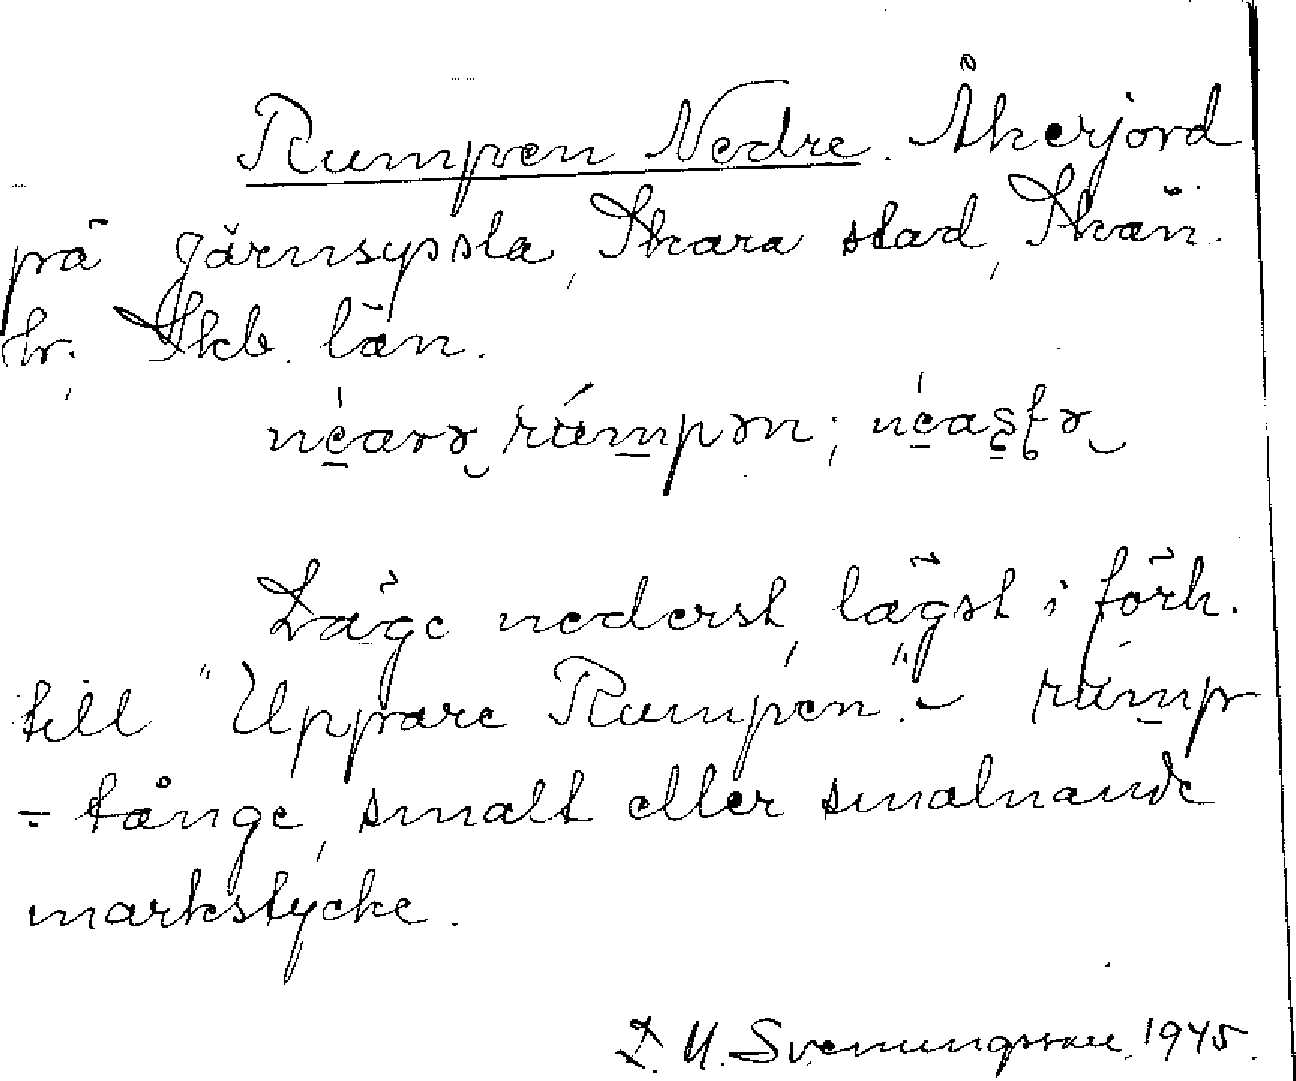 Rumpen Nedre. Åkerjord
på Järnsyssla, Skara stad, Skån.
hr. Skb. län.
rúmpən;
Läge nederst, lägst i förh.
till "Uppare Rumpen". – rúmp
= tånge, smalt eller smalnande
markstycke.
Svenungsson, 1945.